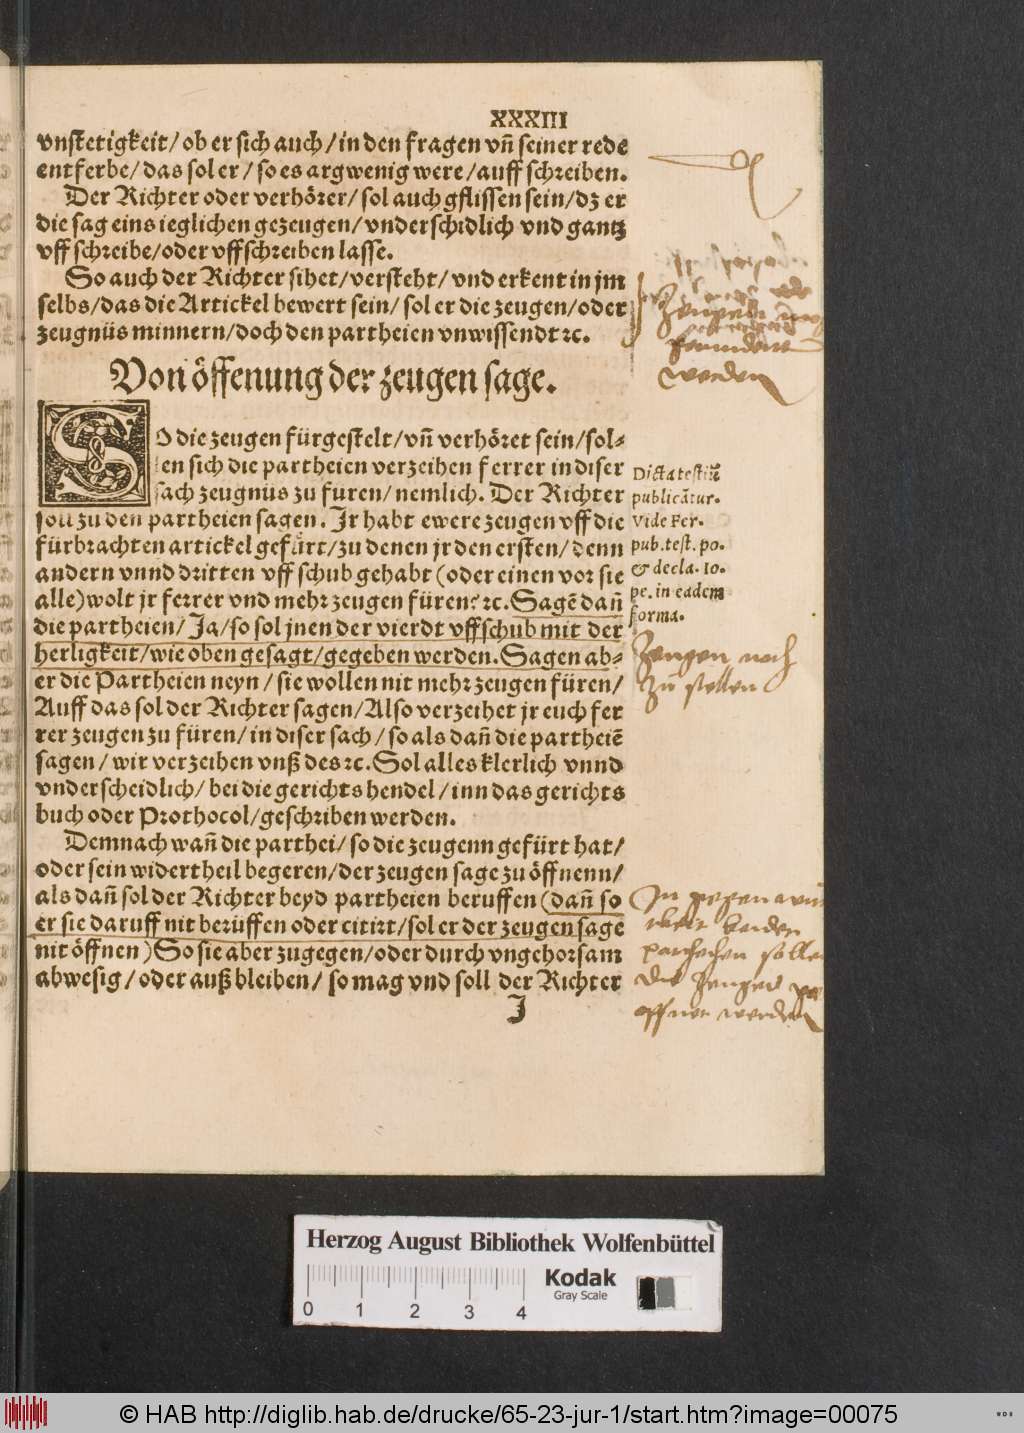 XXXIII
vnstetigkeit/ ob er sich auch/ in den fragen vn̄ seiner rede
entferbe/ das sol er/ so es argwenig were/ auff schreiben.
Der Richter oder verhörer/ sol auch gflissen sein/ dz er
die sag eins ieglichen gezeugen/ vnderschidlich vnd gantz
vff schreibe/ oder vffschreiben lasse.
So auch der Richter sihet/ versteht/ vnd erkent in jm
selbs/ das die Artickel bewert sein/ sol er die zeugen/ oder
zeugnüs minnern/ doch den partheien vnwissendt ꝛc.
Von öffenung der zeugen sage.
SO die zeugen fürgestelt/ vn̄ verhöret sein/ sol⸗
len sich die partheien verzeihen ferrer in diser
sach zeugnüs zu furen/ nemlich. Der Richter
soll zu den partheien sagen. Jr habt ewere zeugen vff die
fürbrachten artickel gefürt/ zu denen jr den ersten/ denn
andern vnnd dritten vff schub gehabt (oder einen vor sie
alle) wolt jr ferrer vnd mehr zeugen füren? ꝛc. Sagē dan̄
die partheien/ Ja/ so sol jnen der vierdt vffschub mit der
herligkeit/ wie oben gesagt/ gegeben werden. Sagen ab⸗
er die Partheien neyn/ sie wollen nit mehr zeugen füren/
Auff das sol der Richter sagen/ Also verzeihet jr euch fer
rer zeugen zu füren/ in diser sach/ so als dan̄ die partheiē
sagen/ wir verzeihen vnß des ꝛc. Sol alles klerlich vnnd
vnderscheidlich/ bei die gerichts hendel/ inn das gerichts
buch oder Prothocol/ geschriben werden.
Demnach wan̄ die parthei/ so die zeugenn gefürt hat/
oder sein widertheil begeren/ der zeugen sage zu öffnenn/
als dan̄ sol der Richter beyd partheien beruffen (dan̄ so
er sie daruff nit berüffen oder citirt/ sol er der zeugen sage
nit öffnen) So sie aber zugegen/ oder durch vngehorsam
abwesig/ oder auß bleiben/ so mag vnd soll der Richter
J
werden
Dicta testiū
publicātur.
Vide Fer.
pub. test. po.
& decla. Io.
pe. in eadem
forma.
Zeugen noch
Zu stellen
beider
partheien solle
die Zeugen
offnet werden
Herzog August Bibliothek Wolfenbüttel
0 1 2 3 4
Kodak
Gray Scale
© HAB http://diglib.hab.de/drucke/65-23-jur-1/start.htm?image=00075